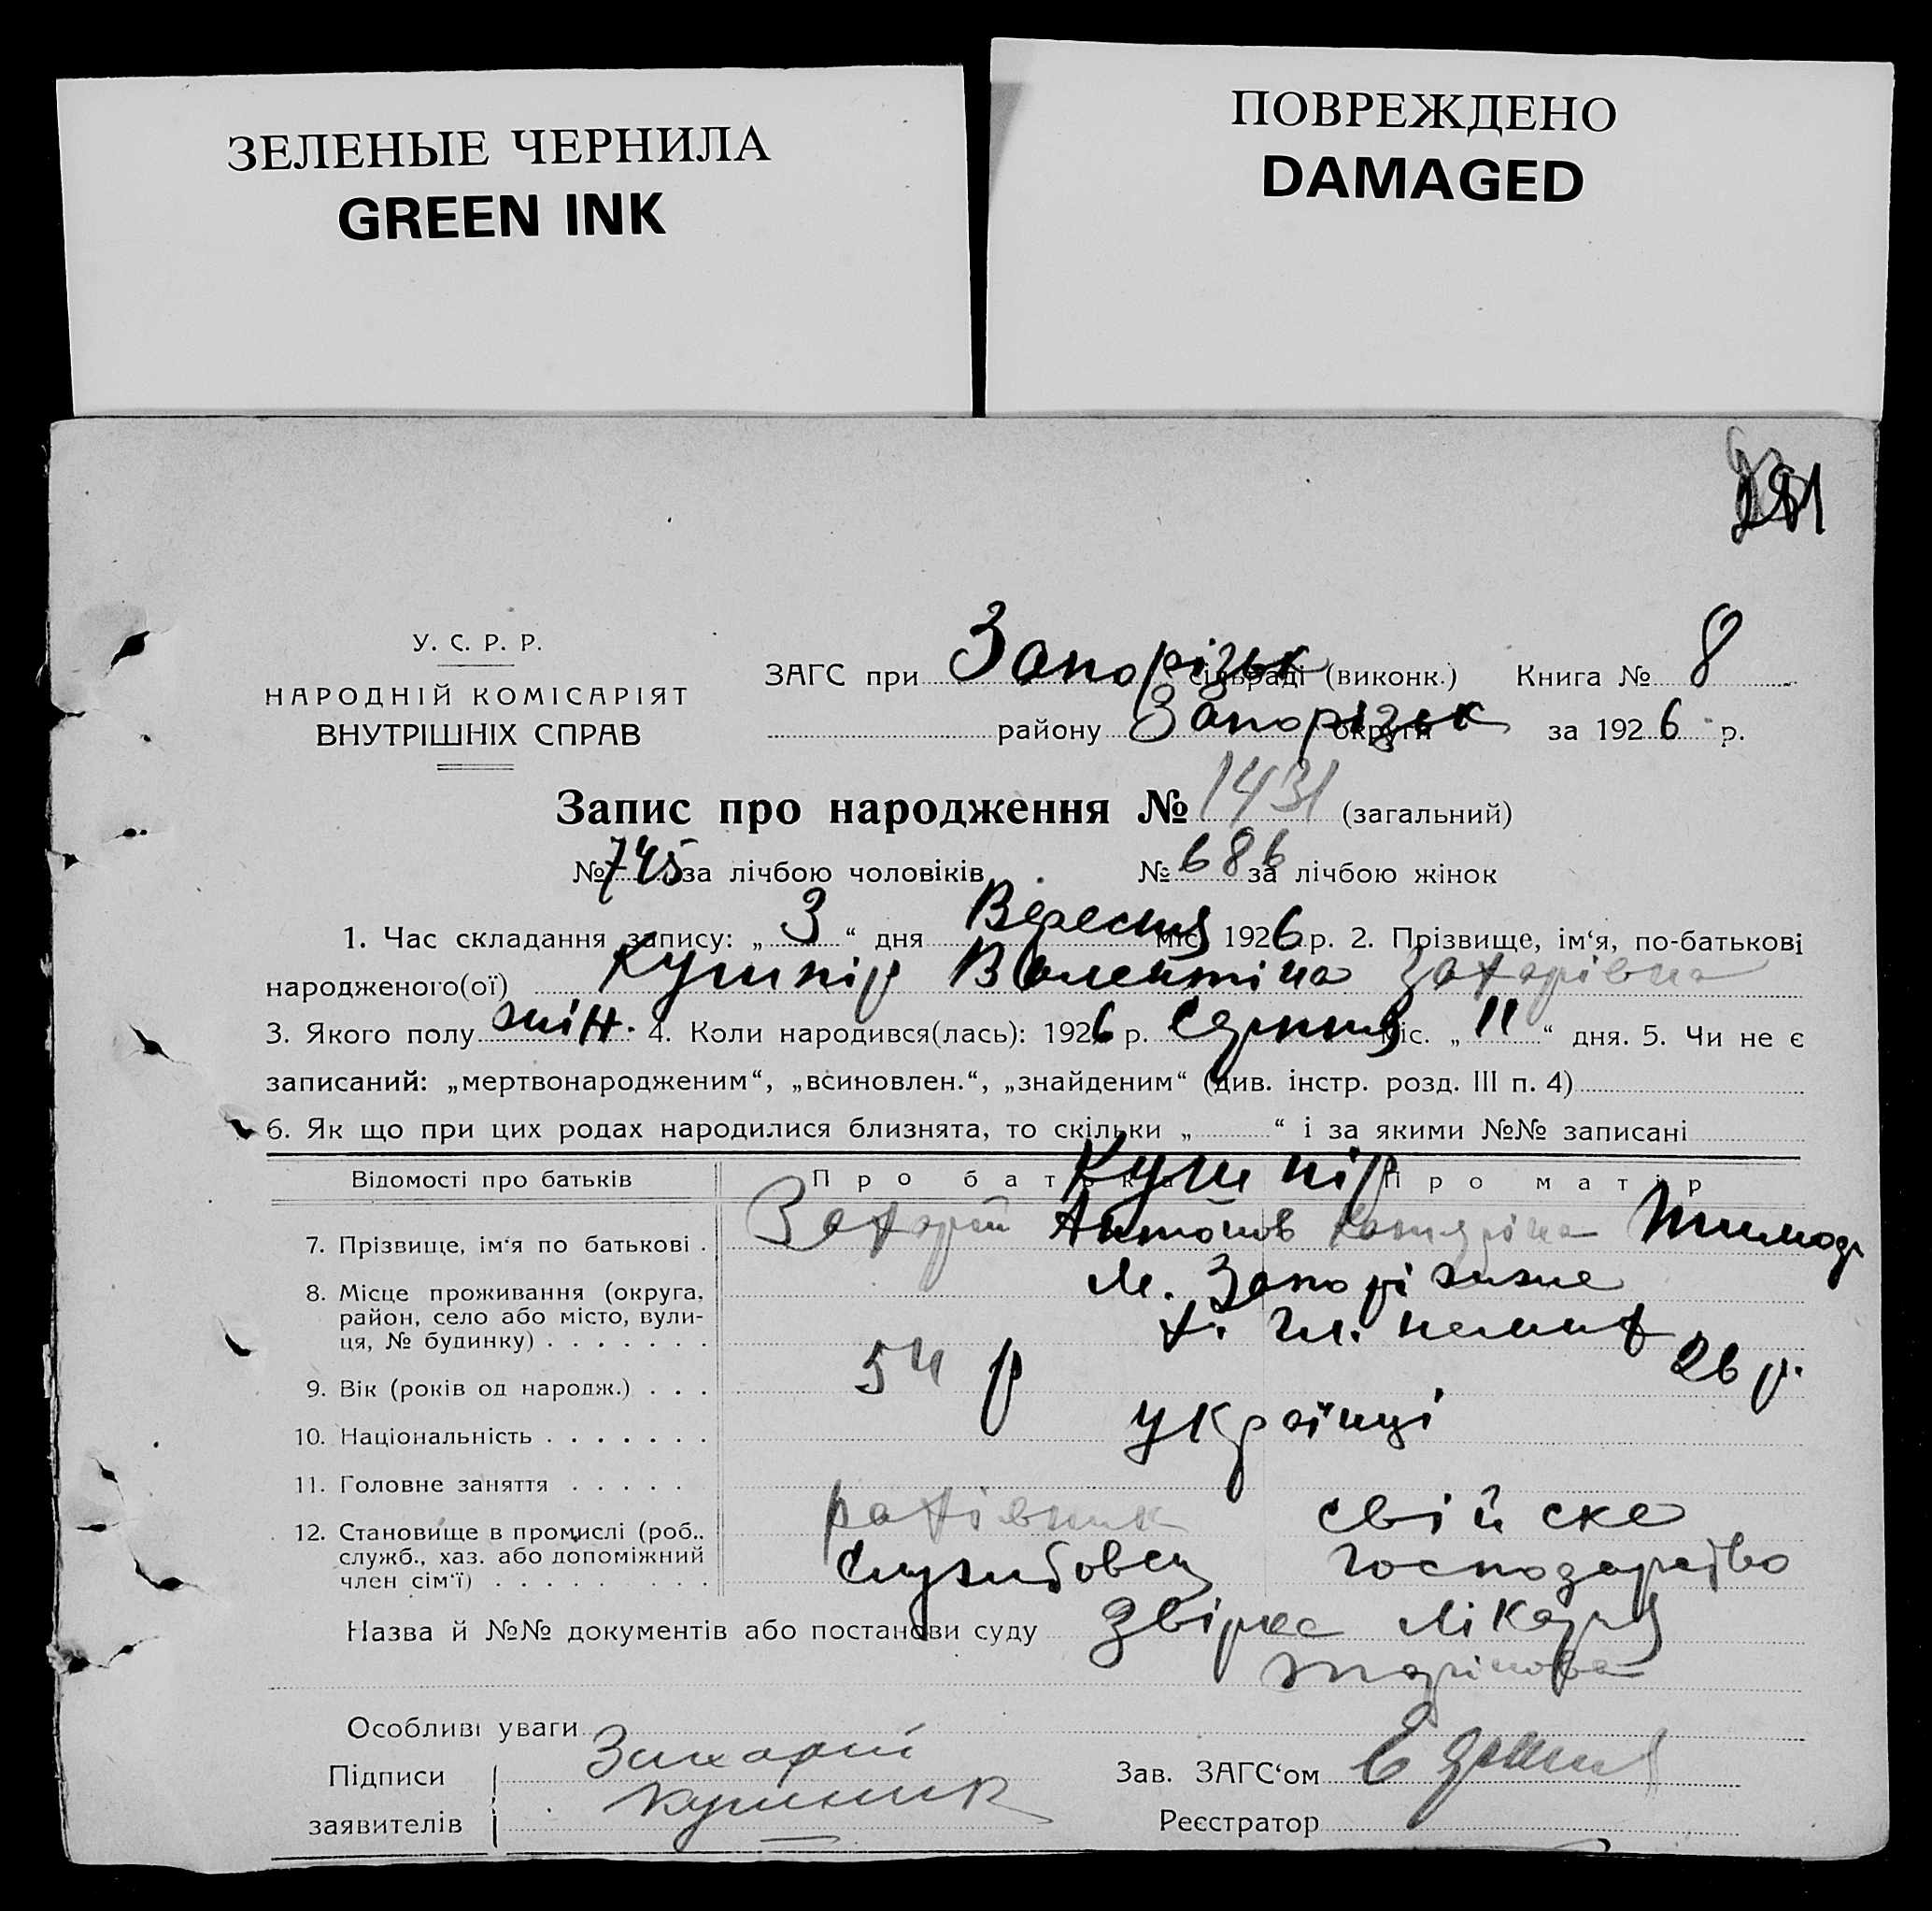 ЗЕЛЕНЫЕ ЧЕРНИЛА
GREEN INK
ПОВРЕЖДЕНО
DAMAGED
У. С. Р. Р.
НАРОДНІЙ КОМІСАРІЯТ
ВНУТРІШНІХ СПРАВ
ЗАГС при Запорізьк сільраді (виконк.) Книга № 8
району Запорізьк округи за 1926 р.
Запис про народження № 1431 (загальний)
№ 745 за лічбою чоловіків № 686 за лічбою жінок
1. Час складання запису: „ 3 “ дня Вересня міс. 1926 р. 2. Прізвище, ім‘я, по-батькові
народженого(ої) Кушнір Валентіна Захарівна
3. Якого полу жін. 4. Коли народився(лась): 1926 р. Серпня міс. „ 11 “ дня. 5. Чи не є
записаний: „мертвонародженим“, „всиновлен.“, „знайденим“ (див. інстр. розд. III п. 4)
6. Як що при цих родах народилися близнята, то скільки „ “ і за якими №№ записані
Відомості про батьків Про батька Про матір
Кушнір
7. Прізвище, ім‘я по батькові . Захарій Антонов Катеріна Тимоф
8. Місце проживання (округа, м. Запоріжжє
район, село або місто, вули-
ця, № будинку) . . . . . . .
9. Вік (років од народж.) . . . 54 р 26 р.
10. Національність . . . . . . . українці
11. Головне заняття . . . . . рахівник свійске
12. Становище в промислі (роб., служб., хаз. або допоміжний член сім‘ї) . . . . . . . . . Службовец господарство
Назва й №№ документів або постанови суду Звірка лікаря
Особливі уваги
Підписи Захарий
заявителів Кушнир
Зав. ЗАГС‘ом
Реєстратор